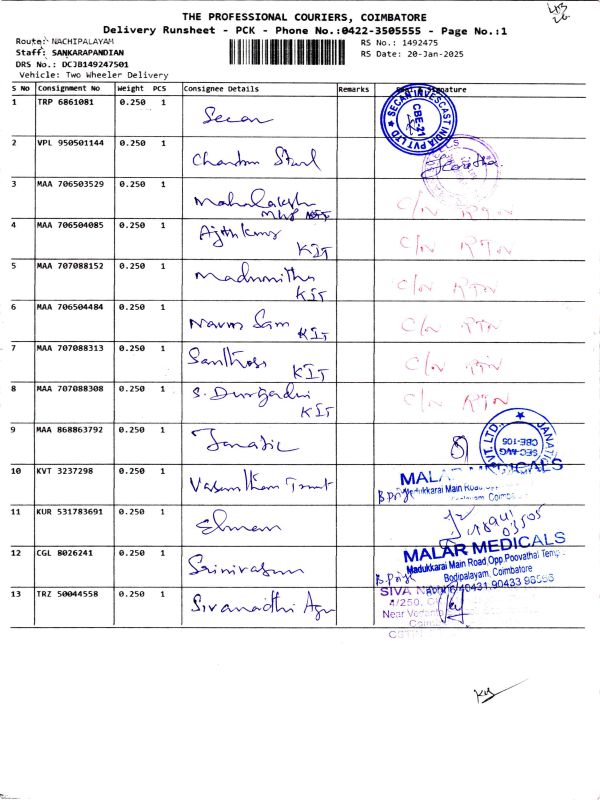 THE PROFESSIONAL COURIERS, COIMBATORE
Delivery Runsheet - PCK - Phone No.:0422-3505555 - Page No.:1
Route: NACHIPALAYAM RS No.: 1492475
Staff: SANKARAPANDIAN RS Date: 20-Jan-2025
DRS No.: DCJB149247501
Vehicle: Two Wheeler Delivery
S No Consignment No Weight PCS Consignee Details Remarks & Signature
1 TRP 6861081 0.250 1 Secan SECAN INVESCAST INDIA PVT LTD CBE-21
2 VPL 950501144 0.250 1
3 MAA 706503529 0.250 1 Mahalakshmi C/N RTN
4 MAA 706504085 0.250 1 Ajith Kumar KIT C/N RTN
5 MAA 707088152 0.250 1 Madhumitha KIT C/N RTN
6 MAA 706504484 0.250 1 KIT C/N RTN
7 MAA 707088313 0.250 1 Santhosh KIT C/N RTN
8 MAA 707088308 0.250 1 S. KIT C/N RTN
9 MAA 868863792 0.250 1 Janatic CBE-105
10 KVT 3237298 0.250 1 Vasantham Trust MALAR MEDICALS
Madukkarai Main Road,Opp
11 KUR 531783691 0.250 1 Elman
12 CGL 8026241 0.250 1 Srinivasan MALAR MEDICALS
Madukkarai Main Road,Opp.Poovathal Temp
Bodipalayam, Coimbatore
13 TRZ 50044558 0.250 1 SIVA
4/250,
Near